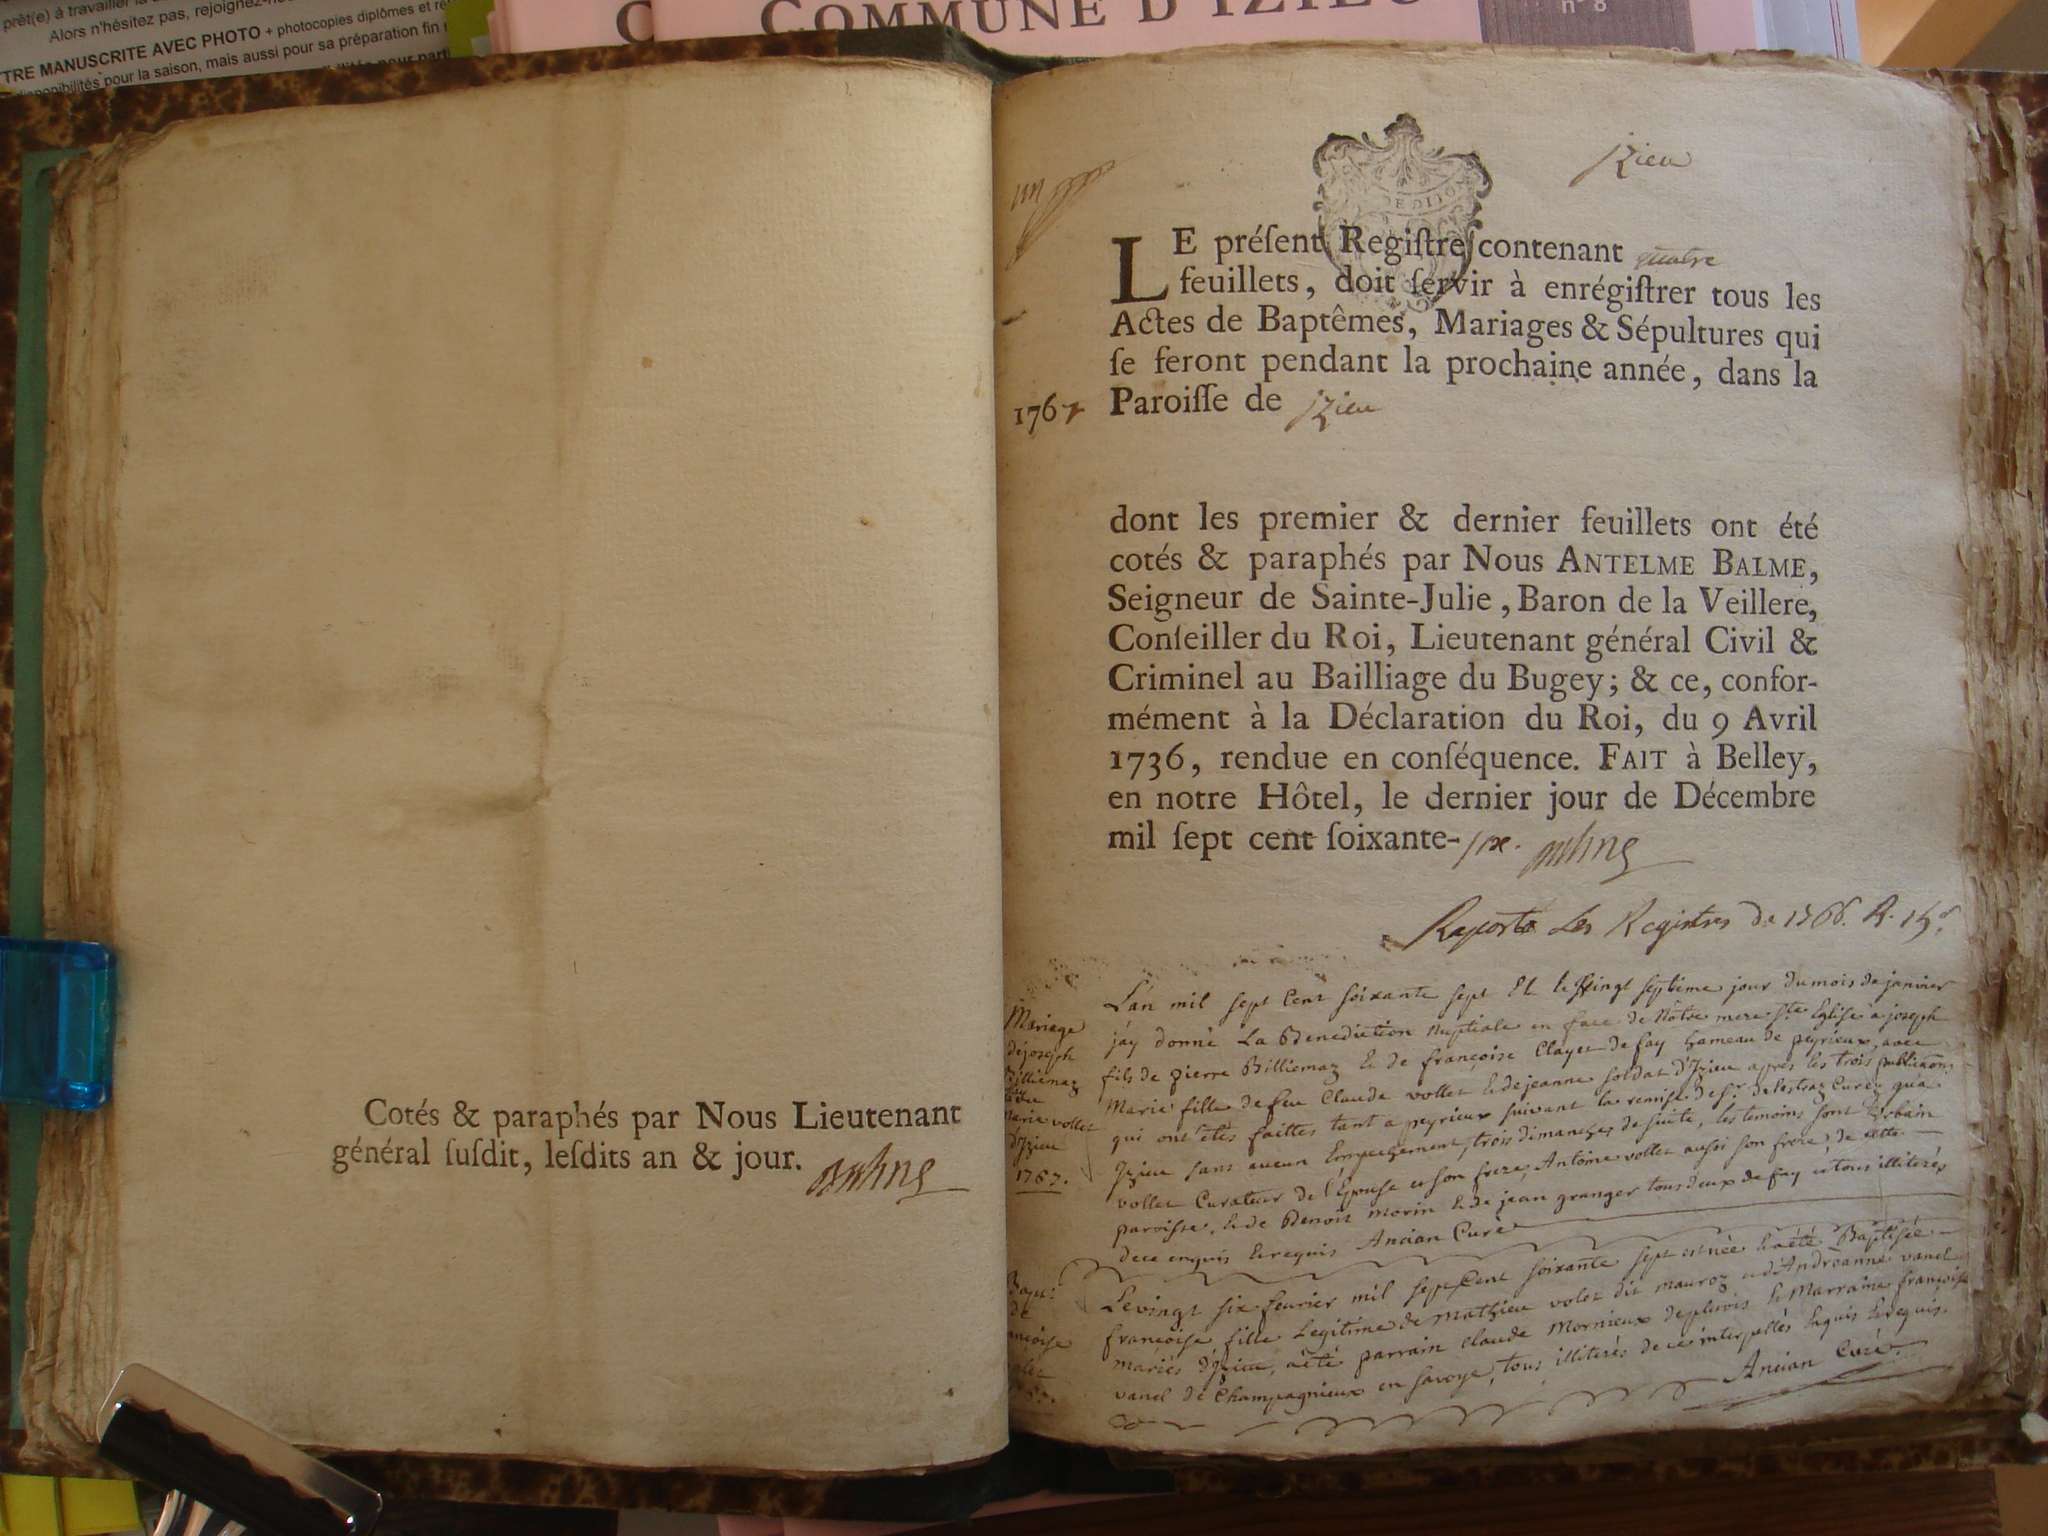 prêt(e) à travailler
Alors n'hésitez pas, rejoignez-
TRE MANUSCRITE AVEC PHOTO + photocopies diplômes et
disponibilités pour la saison, mais aussi pour sa préparation fin
COMMUNE D'IZIEU
n° 8
Cotés & paraphés par Nous Lieutenant
général ſuſdit, leſdits an & jour.
un
Izieu
LE préſent Regiſtre contenant quatre
feuillets, doit ſervir à enrégiſtrer tous les
Actes de Baptêmes, Mariages & Sépultures qui
ſe feront pendant la prochaine année, dans la
1767 Paroiſſe de Izieu
dont les premier & dernier feuillets ont été
cotés & paraphés par Nous ANTELME BALME,
Seigneur de Sainte-Julie, Baron de la Veillere,
Conſeiller du Roi, Lieutenant général Civil &
Criminel au Bailliage du Bugey; & ce, confor-
mément à la Déclaration du Roi, du 9 Avril
1736, rendue en conſéquence. FAIT à Belley,
en notre Hôtel, le dernier jour de Décembre
mil ſept cent ſoixante-six.
Raporte Les Registres de 1766.
Mariage
de joseph
Billiemaz
avec
Marie vollet
d'Izieu
1767.
L'an mil sept Cent soixante sept Et le vingt septieme jour du mois de janvier
j'ay donné La Benediction Nuptiale en face de Nôtre mere Ste Eglise a joseph
fils de pierre Billiemaz & de françoise Clayet de fay hameau de peyrieux, avec
Marie fille de feu Claude vollet & de jeanne soldat d'Izieu apres les trois publications
qui ont étés faittes tant a peyrieux suivant la remise de Sr. delastraz Curé, qu'a
Izieu sans aucun Empechement, trois dimanches de suite, les temoins sont Urbain
vollet Curateur de l'Epouse et son frere, Antoine vollet aussi son frere de cette
paroisse, & de Benoit morin & de jean granger tous deux de fay et tous illiterés
de ce enquis & requis Ancian Curé
Bapt:
de
ançoise
olet
Le vingt six fevrier mil sept Cent soixante sept est née & a été Baptisée
françoise fille Legitime de mathieu volet dit mauroz et d'Andreanne vanel
mariés d'Izieu, a été parrain claude Mornieux & Marraine françoise
vanel de Champagnieux en savoye, tous illiterés de ce interpellés Enquis & requis.
Ancian Curé